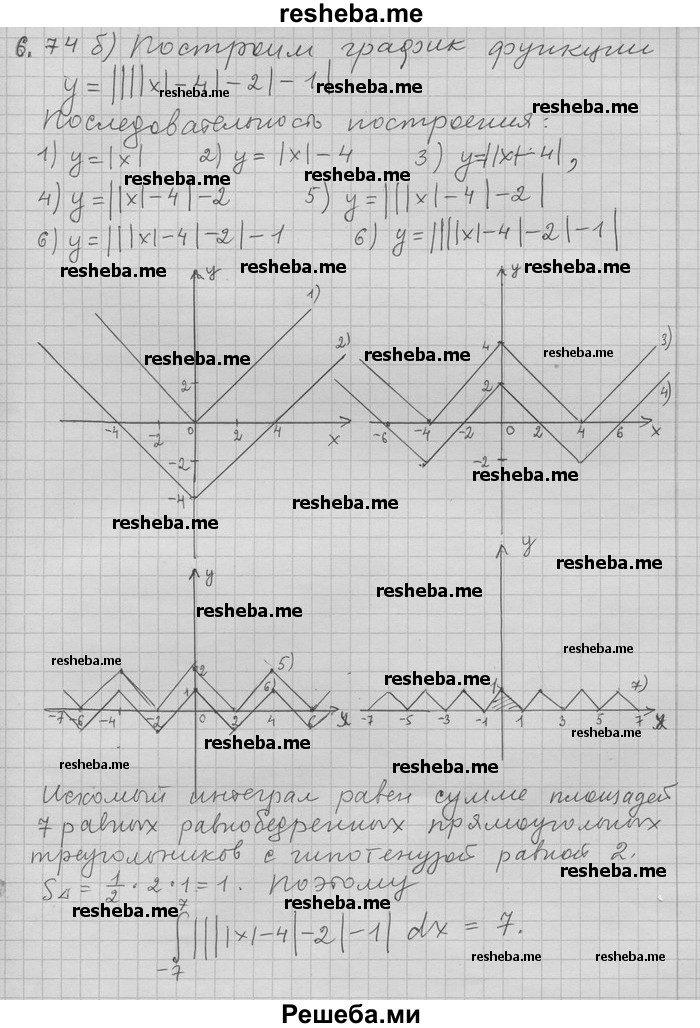 resheba.me
6.74 б) Построим график функции
y = ||||x|-4|-2|-1|
Последовательность построения:
1) y=|x| 2) y= |x|-4 3) y=||x|-4|,
4) y=||x|-4|-2 5) y=|||x|-4|-2|
6) y=|||x|-4|-2|-1 6) y=||||x|-4|-2|-1|
resheba.me resheba.me resheba.me
resheba.me resheba.me
resheba.me resheba.me resheba.me
y 1) 2) 2 -4 -2 0 2 4 x -2 -4
y 3) 4) 4 2 -6 -4 -2 0 2 4 6 x -2
resheba.me resheba.me resheba.me
resheba.me resheba.me
resheba.me resheba.me resheba.me
y 5) 2 1 6) -7 -6 -4 -2 0 2 4 6 x
y 1 7) -7 -5 -3 -1 1 3 5 7 x
resheba.me resheba.me
resheba.me resheba.me
resheba.me resheba.me
resheba.me
Искомый интеграл равен сумме площадей
7 равных равнобедренных прямоугольных
треугольников с гипотенузой равной 2.
S△ = 1/2 · 2 · 1 = 1. Поэтому
resheba.me resheba.me resheba.me
7
∫ ||||x|-4|-2|-1| dx = 7.
-7
resheba.me resheba.me
Решеба.ми